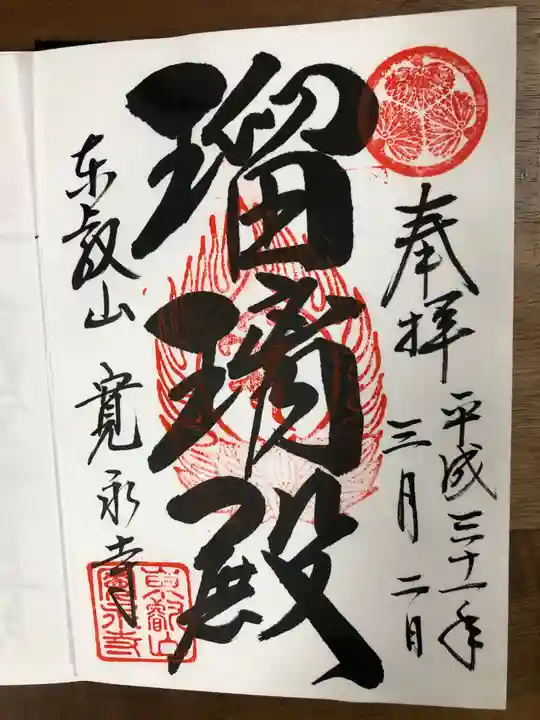 奉拝
平成三十一年
三月二日
瑠璃殿
東叡山 寛永寺
東叡山
寛永寺